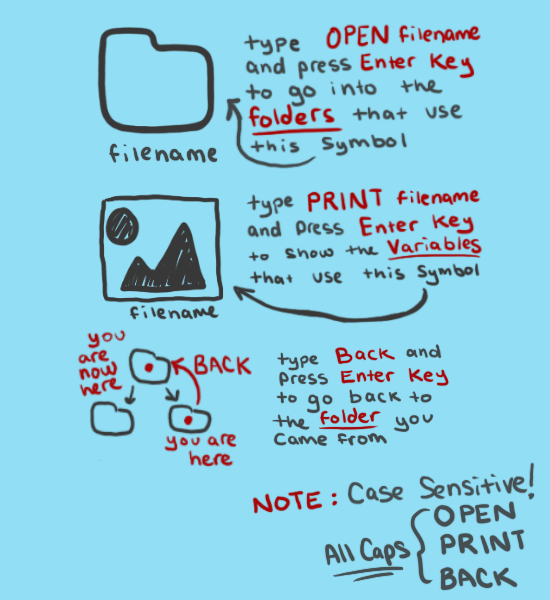 type OPEN filename
and press Enter Key
to go into the
folders that use
this symbol
filename
type PRINT filename
and press Enter Key
to show the Variables
that use this symbol
filename
you
are
now
here
BACK
you are
here
type Back and
press Enter Key
to go back to
the folder you
came from
NOTE: Case Sensitive!
All Caps
OPEN
PRINT
BACK